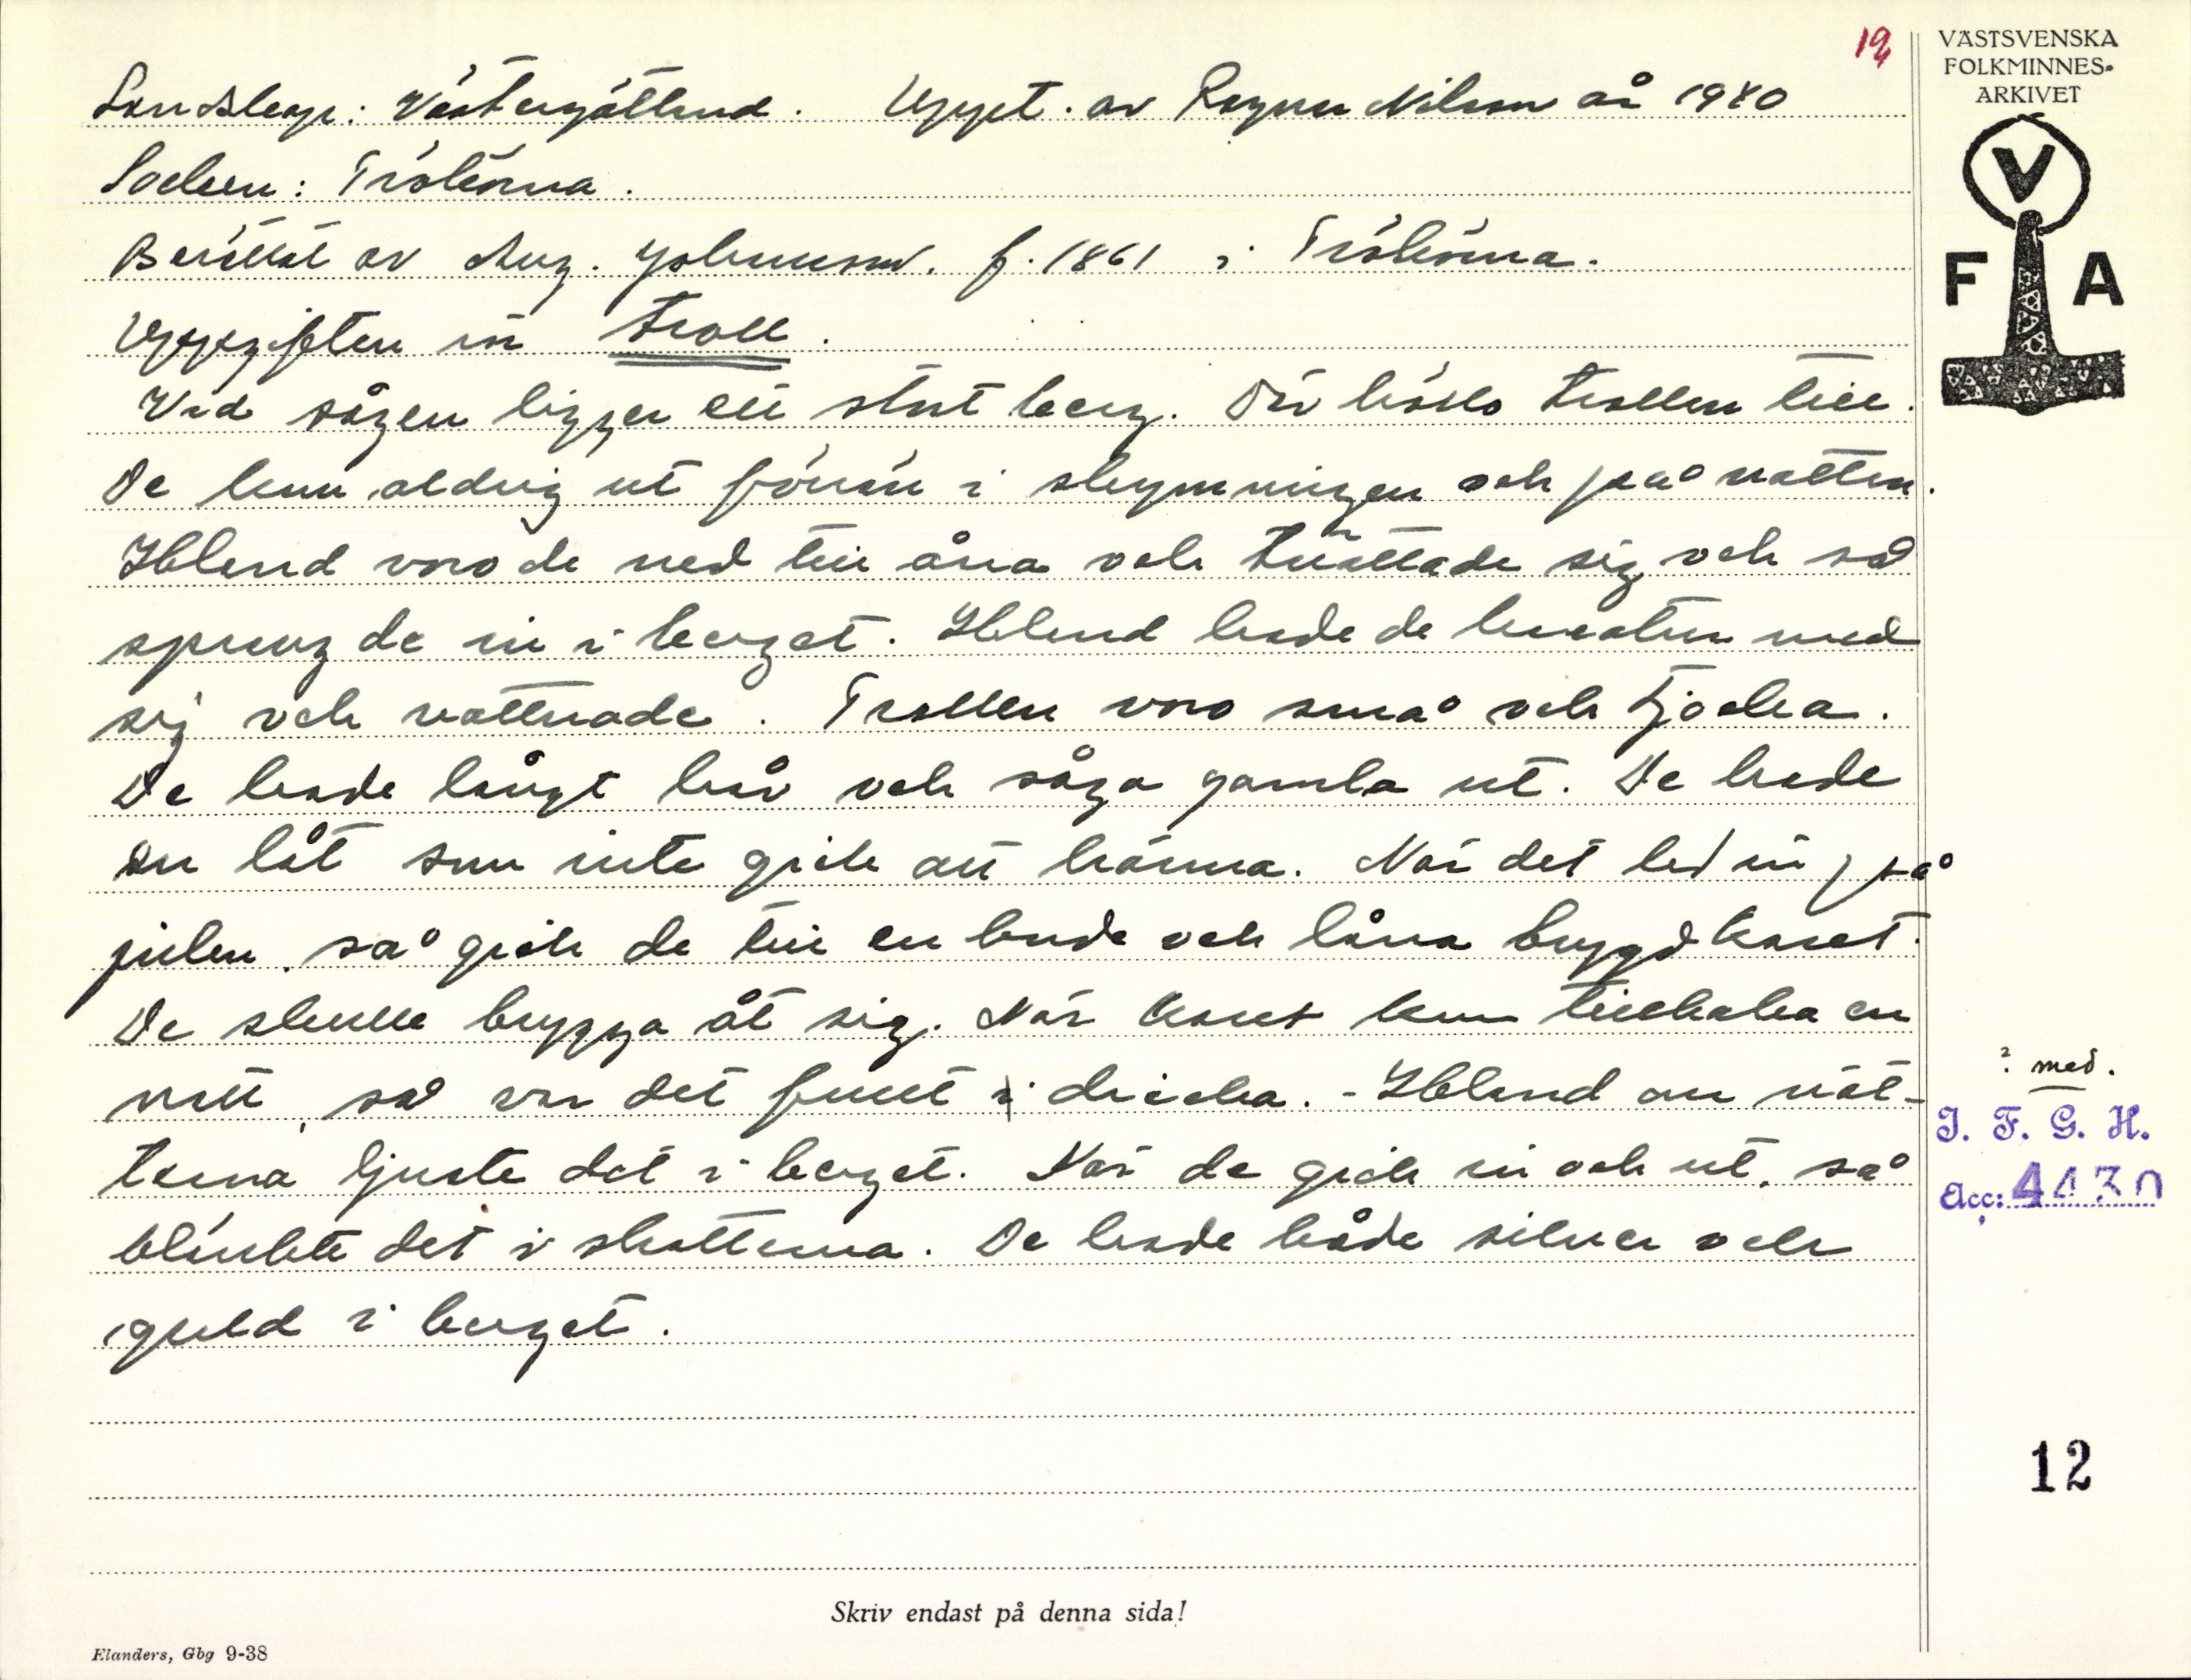 12
VÄSTSVENSKA
FOLKMINNES-
ARKIVET
V
F A
Landskap: Västergötland. Uppt. av Ragnar Nilsson år 1940
Socken: Trökörna.
Berättat av Aug. Johansson. f. 1861 i Trökörna.
Uppgiften är troll.
Vid sågen ligger ett stort berg. Där höllo trollen till.
De kom aldrig ut förrän i skymningen och på natten.
Ibland voro de ned till åna och tvättade sig och så
sprung de in i berget. Ibland hade de kreatur med
sig och vattnade. Trollen voro små och tjocka.
De hade långt hår och såga gamla ut. De hade
en låt som inte gick att härma. När det led in på
julen, så gick de till en bonde och låna bryggkaret.
De skulle brygga åt sig. När karet kom tillbaka en
natt, så var det fullt i dricka. - Ibland om nät-
terna ljuste det i berget. När de gick in och ut, så
blänkte det i skatterna. De hade både silver och
guld i berget.
? med.
I. F. G. H.
Acc: 4430
12
Skriv endast på denna sida!
Elanders, Gbg 9-38